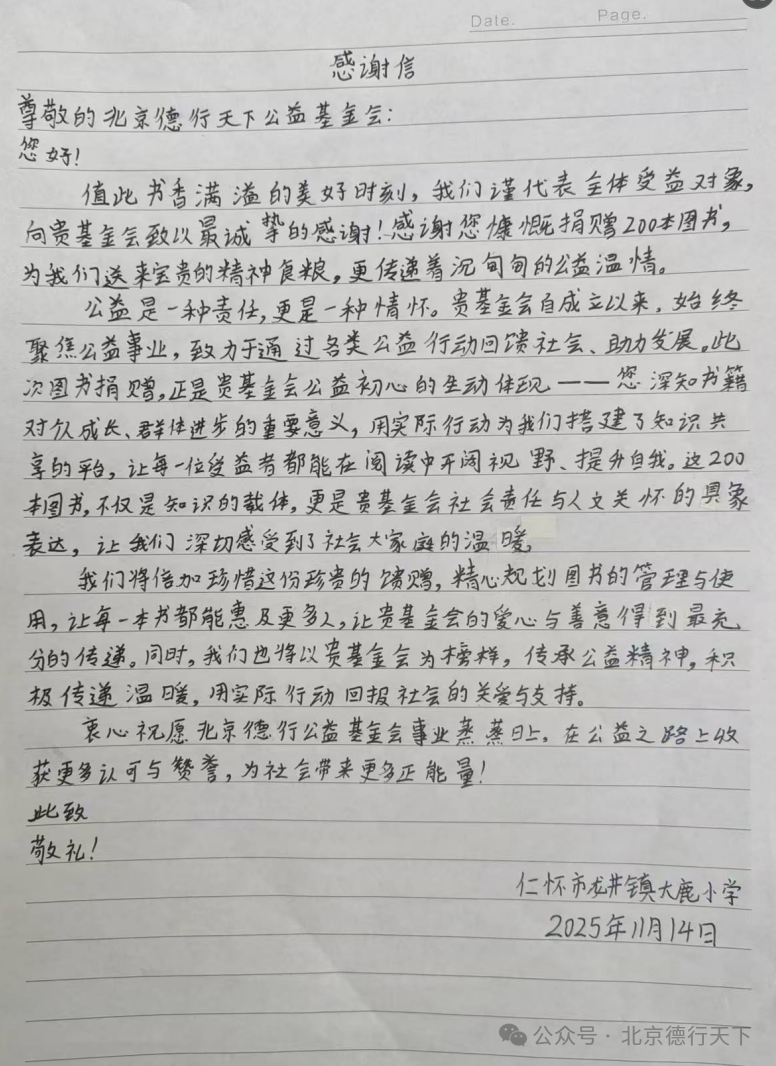 Date.　Page.
感谢信
尊敬的北京德行天下公益基金会：
您好！
值此书香满溢的美好时刻，我们谨代表全体受益对象，
向贵基金会致以最诚挚的感谢！感谢您慷慨捐赠200本图书，
为我们送来宝贵的精神食粮，更传递着沉甸甸的公益温情。
公益是一种责任，更是一种情怀。贵基金会自成立以来，始终
聚焦公益事业，致力于通过各类公益行动回馈社会、助力发展。此
次图书捐赠，正是贵基金会公益初心的生动体现——您深知书籍
对个人成长、群体进步的重要意义，用实际行动为我们搭建了知识共
享的平台，让每一位受益者都能在阅读中开阔视野、提升自我。这200
本图书，不仅是知识的载体，更是贵基金会社会责任与人文关怀的具象
表达，让我们深切感受到了社会大家庭的温暖。
我们将倍加珍惜这份珍贵的馈赠，精心规划图书的管理与使
用，让每一本书都能惠及更多人，让贵基金会的爱心与善意得到最充
分的传递。同时，我们也将以贵基金会为榜样，传承公益精神，积
极传递温暖，用实际行动回报社会的关爱与支持。
衷心祝愿北京德行公益基金会事业蒸蒸日上，在公益之路上收
获更多认可与赞誉，为社会带来更多正能量！
此致
敬礼！
仁怀市龙井镇大鹿小学
2025年11月14日
公众号·北京德行天下